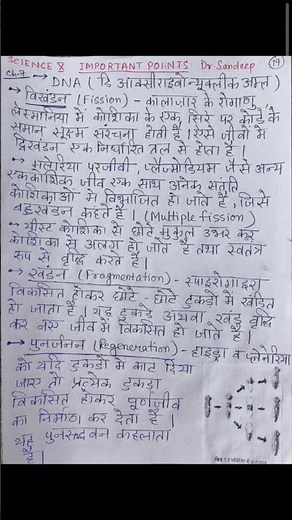 SCIENCE 8 IMPORTANT POINTS Dr Sandeep 19
Ch-7 → DNA (डि ऑक्सीराइबोन्यूक्लीक अम्ल)
→ विखंडन (Fission) - कालाजार के रोगाणु,
लेस्मानिया में कोशिका के एक सिरे पर कोड़े के
समान सूक्ष्म संरचना होती है। ऐसे जीवों में
द्विखंडन एक निर्धारित तल से होता है।
→ मलेरिया परजीवी, प्लैज्मोडियम जैसे अन्य
एककोशिक जीव एक साथ अनेक संतति
कोशिकाओं में विभाजित हो जाते हैं, जिसे
बहुखंडन कहते हैं। (Multiple fission)
→ यीस्ट कोशिका से छोटे मुकुल उभर कर
कोशिका से अलग हो जाते हैं तथा स्वतंत्र
रूप से वृद्धि करते हैं।
→ खंडन (Fragmentation) - स्पाइरोगाइरा
विकसित होकर छोटे-छोटे टुकड़ों में खंडित
हो जाता है। यह टुकड़े अथवा खंड वृद्धि
कर नए जीव में विकसित हो जाते हैं।
→ पुनर्जनन (Regeneration) - हाइड्रा व प्लेनेरिया
को यदि टुकड़ों में काट दिया
जाए तो प्रत्येक टुकड़ा
विकसित होकर पूर्णजीव
का निर्माण कर देता है।
यह पुनरुद्भवन कहलाता
है।